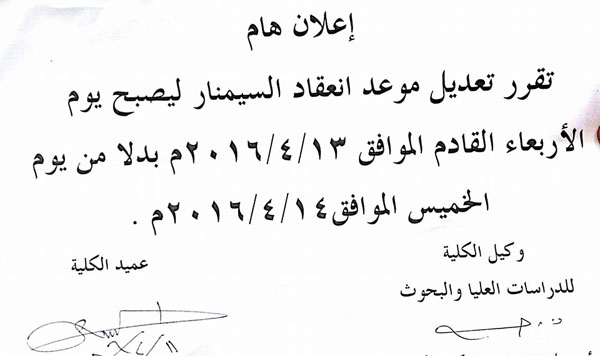 إعلان هام
تقرر تعديل موعد انعقاد السيمنار ليصبح يوم
الأربعاء القادم الموافق ٢٠١٦/٤/١٣م بدلا من يوم
الخميس الموافق٢٠١٦/٤/١٤م .
وكيل الكلية
عميد الكلية
للدراسات العليا والبحوث